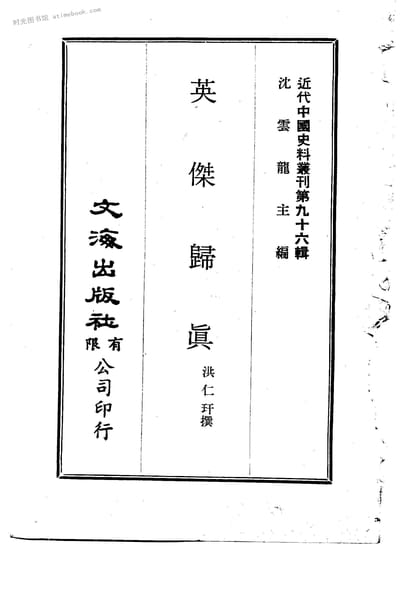 时光图书馆 atimebook.com
近代中國史料叢刊第九十六輯
沈雲龍主編
英傑歸眞
洪仁玕撰
文海出版社有限公司印行